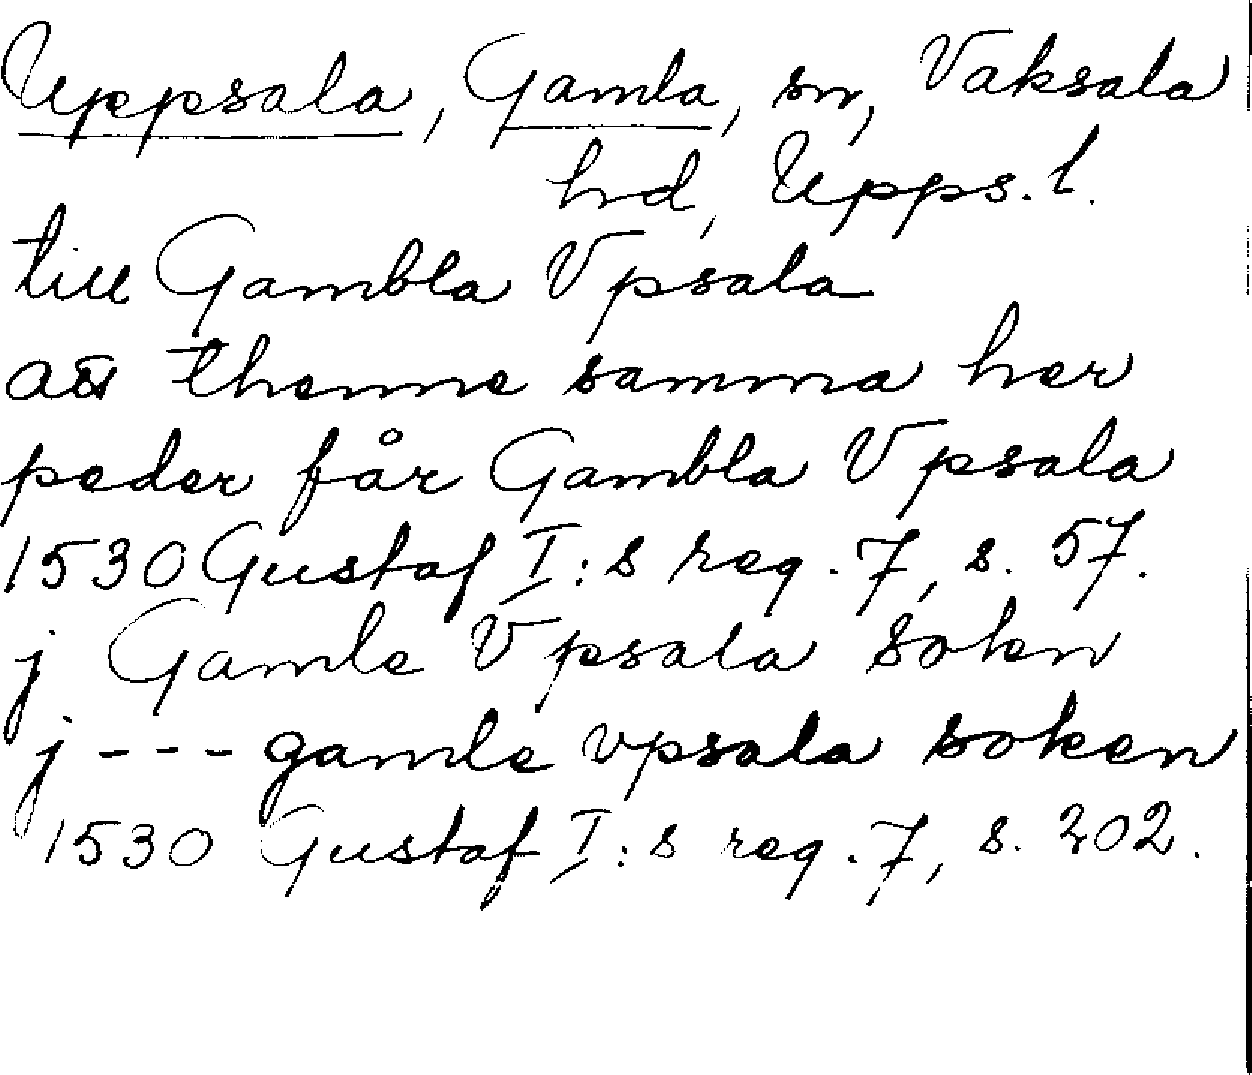 Uppsala, Gamla, sn, Vaksala
hd, Upps. l.
till Gambla Vpsala
att thenne samma her
peder får Gambla Vpsala
1530 Gustaf I:s reg. 7, s. 57.
j Gamle Vpsala sokn
j --- gamle vpsala soken
1530 Gustaf I:s reg. 7, s. 202.